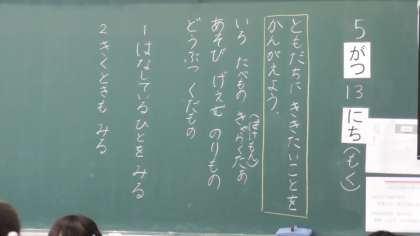 5がつ13にち(もく)
ともだちに ききたいことを
かんがえよう。
いろ たべもの きゃらくたあ
(ぽけもん)
あそび げえむ のりもの
どうぶつ くだもの
1 はなしているひとを みる
2 きくときも みる